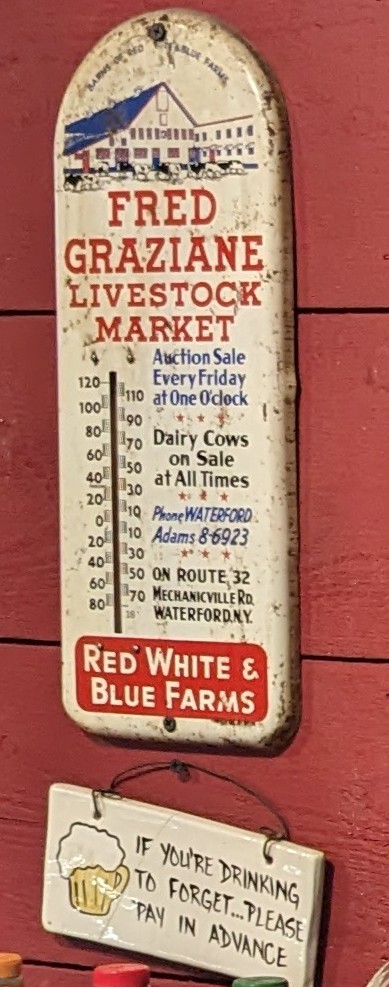 BARNS OF RED WHITE & BLUE FARMS
FRED
GRAZIANE
LIVESTOCK
MARKET
Auction Sale
Every Friday
at One O'clock
Dairy Cows
on Sale
at All Times
Phone WATERFORD
Adams 8-6923
ON ROUTE 32
MECHANICVILLE RD.
WATERFORD.N.Y.
120
110
100
90
80
70
60
50
40
30
20
10
0
10
20
30
40
50
60
70
80
RED WHITE &
BLUE FARMS
IF YOU'RE DRINKING
TO FORGET...PLEASE
PAY IN ADVANCE